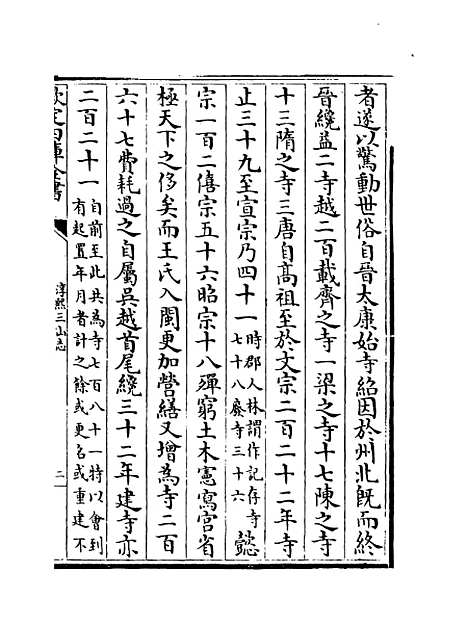 者遂以驚動世俗自晉太康始寺紹因於州北旣而終
晉纔益二寺越二百載齊之寺一梁之寺十七陳之寺
十三隋之寺三唐自高祖至於文宗二百二十二年寺
止三十九至宣宗乃四十一時郡人林謂作記存寺七十八廢寺三十六懿
宗一百二僖宗五十六昭宗十八殫窮土木憲寫宫省
極天下之侈矣而王氏入閩更加營繕又增為寺二百
六十七費耗過之自屬吳越首尾纔三十二年建寺亦
二百二十一自前至此共為寺七百八十一特以會到有起置年月者計之餘或更名或重建不
欽定四庫全書
淳熙三山志
二